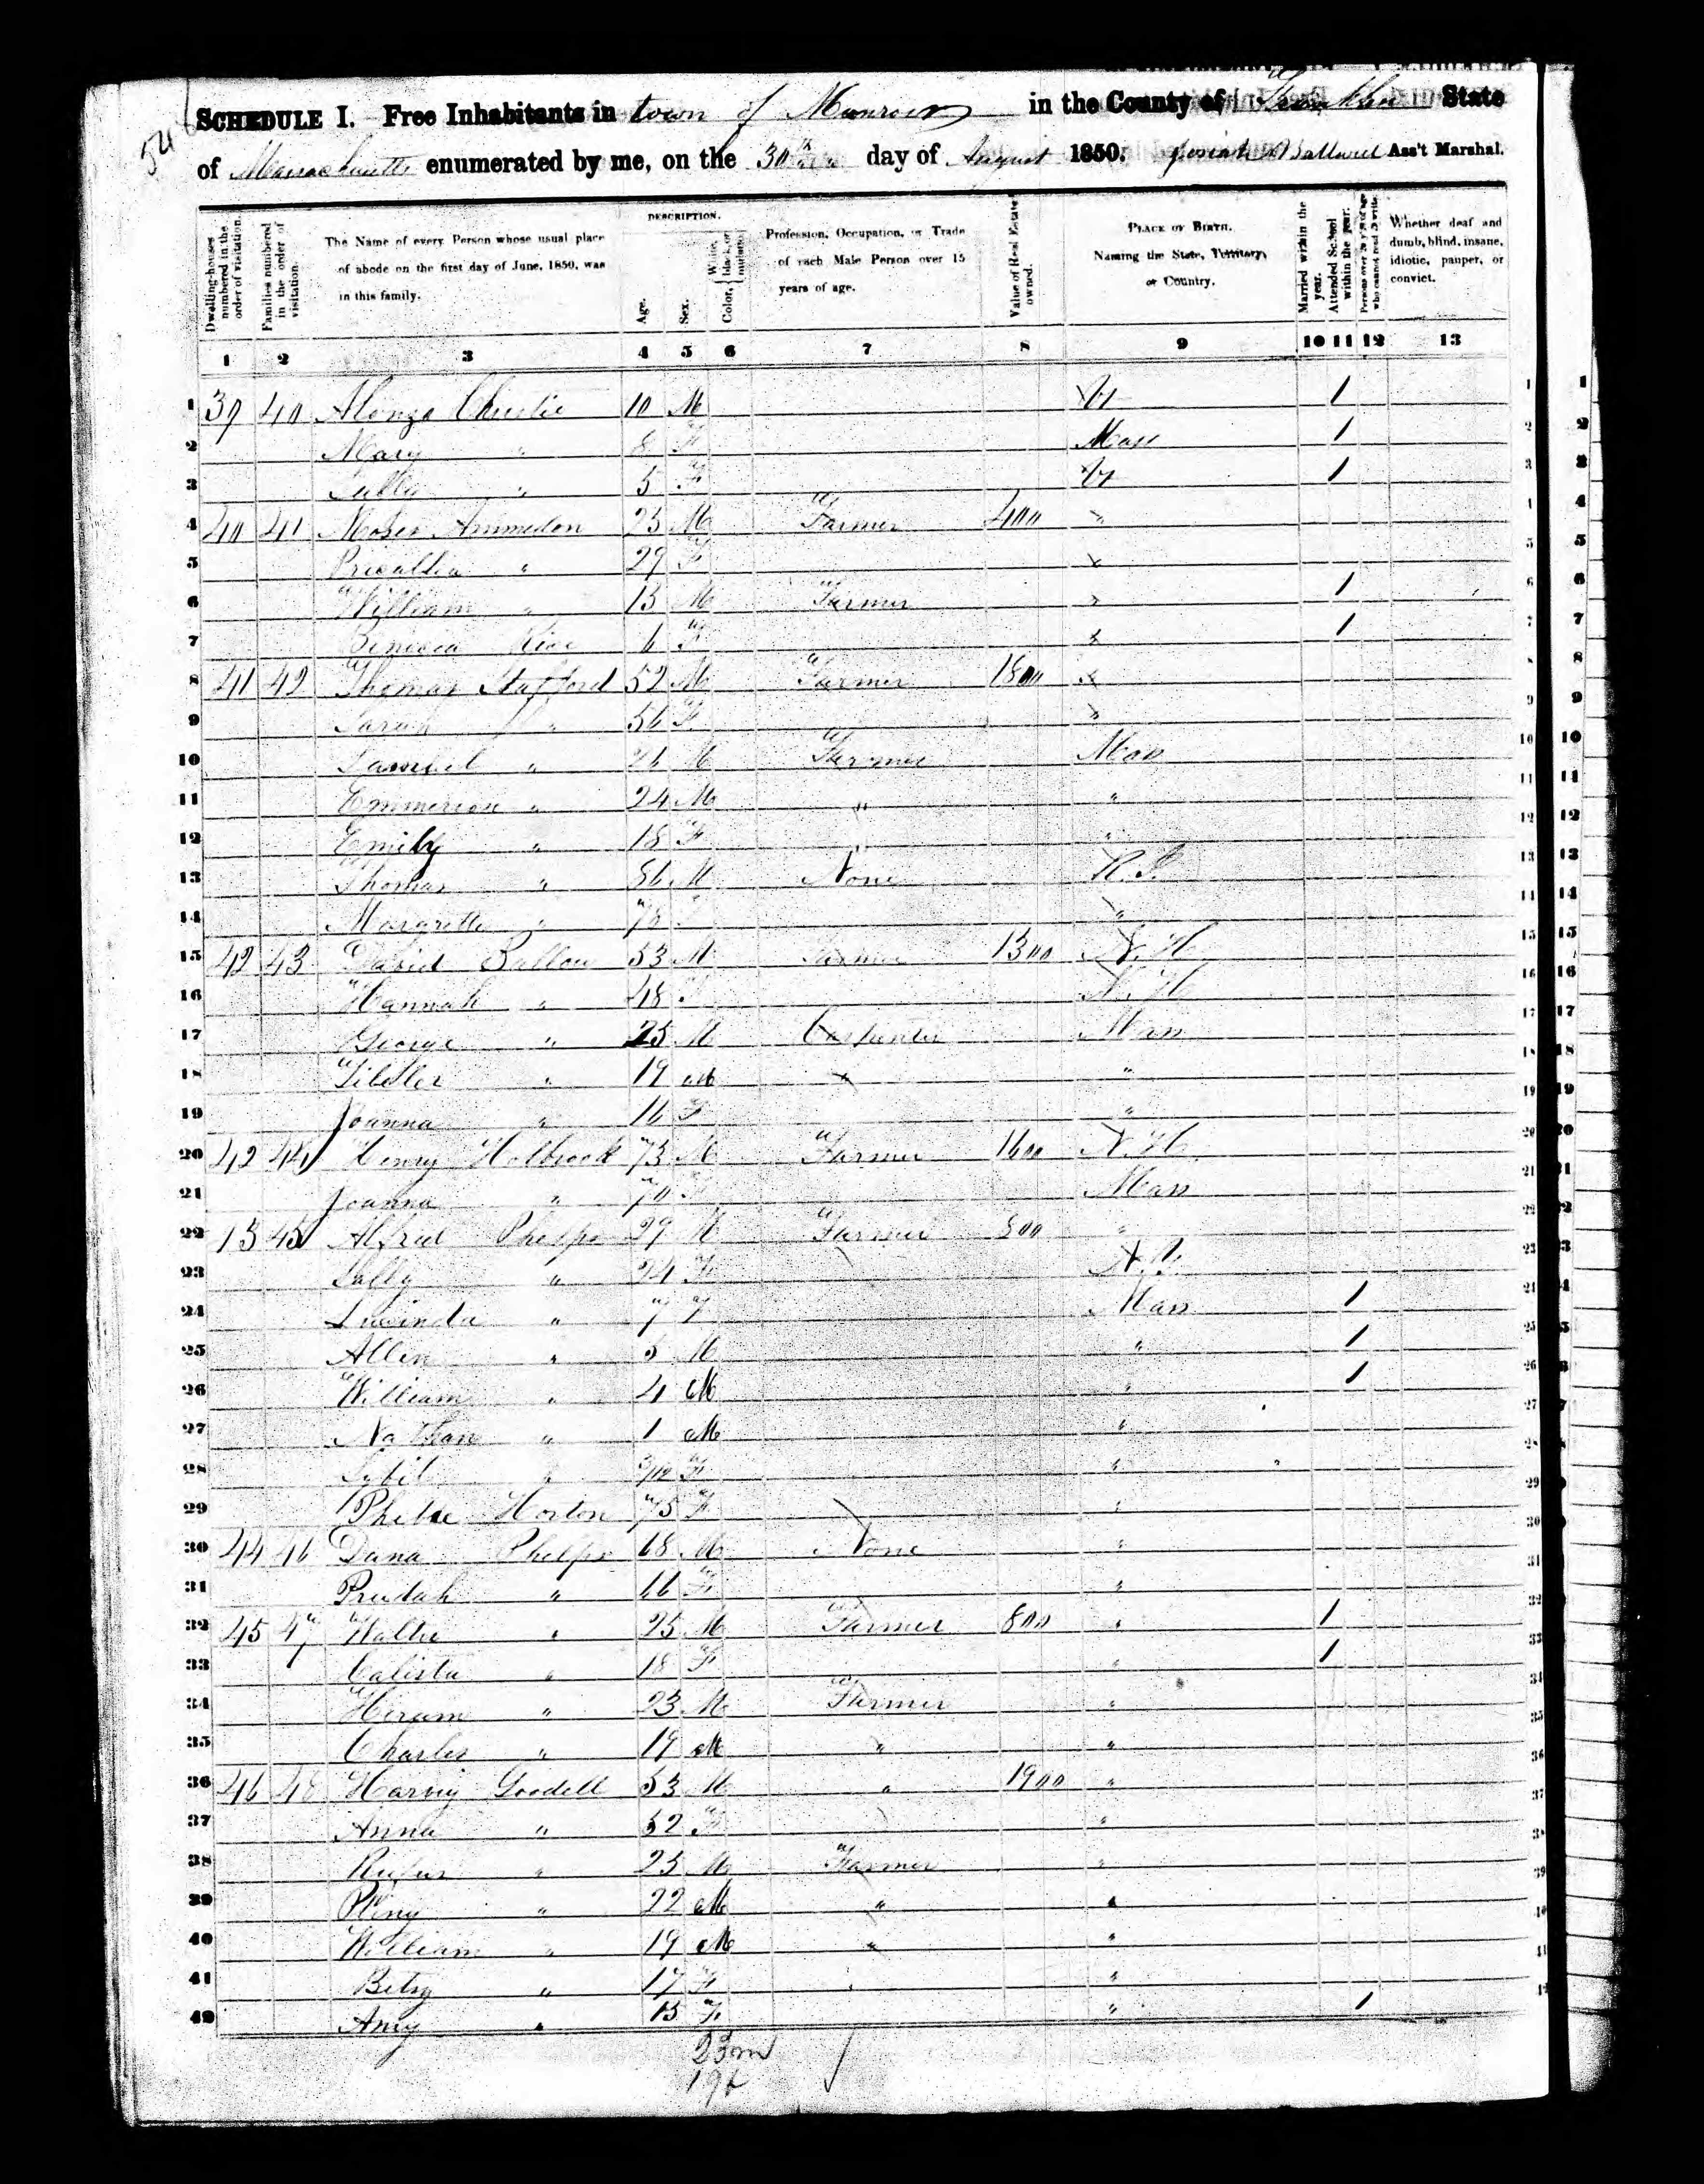 SCHEDULE I. Free Inhabitants in town of Monroe in the County of Franklin State
of Massachusetts enumerated by me, on the 30th day of August 1850. Josiah Ballard Ass't Marshal.
Dwelling-houses numbered in the order of visitation. Families numbered in the order of visitation. The Name of every Person whose usual place of abode on the first day of June, 1850, was in this family. DESCRIPTION. Age. Sex. Color, { White, black, or mulatto. Profession, Occupation, or Trade of each Male Person over 15 years of age. Value of Real Estate owned. PLACE OF BIRTH. Naming the State, Territory, or Country. Married within the year. Attended School within the year. Persons over 20 y'rs of age who cannot read & write. Whether deaf and dumb, blind, insane, idiotic, pauper, or convict.
1 2 3 4 5 6 7 8 9 10 11 12 13
1 39 40 Alonzo 10 M Vt 1 1
2 Mary " 8 F Mass 1 2
3 " 5 F Vt 1 3
4 40 41 Moses Ammedon 25 M Farmer 400 " 4
5 " 29 F " 5
6 William " 15 M Farmer " 1 6
7 Rice 6 F " 1 7
8 41 42 Thomas Stafford 52 M Farmer 1800 " 8
9 Sarah " 56 F " 9
10 Samuel " 26 M Farmer Mass 10
11 Emmerson " 24 M " " 11
12 Emily " 18 F " 12
13 Thomas " 86 M None R.I. 13
14 Margrette " 78 F " 14
15 42 43 David Ballou 53 M Farmer 1300 N.H. 15
16 Hannah " 48 F N.H. 16
17 George " 25 M Carpenter Mass 17
18 " 19 M " " 18
19 Joanna " 16 F " 19
20 42 44 Henry Holbrook 73 M Farmer 1600 N.H. 20
21 Joanna " 70 F Mass 21
22 13 45 Alfred Phelps 29 M Farmer 800 " 22
23 Sally " 24 F 23
24 Luvinda " 7 F Mass 1
25 Allen " 5 M " 1
26 William " 4 M " 1
27 Nathan " 1 M "
28 Sybil " F "
29 Phebe Horton 75 F "
30 44 46 Dana Phelps 68 M None "
31 Prudah " 66 F "
32 45 47 " 25 M Farmer 800 " 1
33 Calista " 18 F " 1
34 Hiram " 23 M Farmer "
35 Charles " 19 M " "
36 46 48 Harvy Goodell 53 M " 1900 "
37 Anna " 52 F "
38 Rufus " 25 M Farmer "
39 Pliny " 22 M " "
40 William " 19 M " "
41 Betsy " 17 F "
42 Amy " 15 F " 1
23 m
19 f